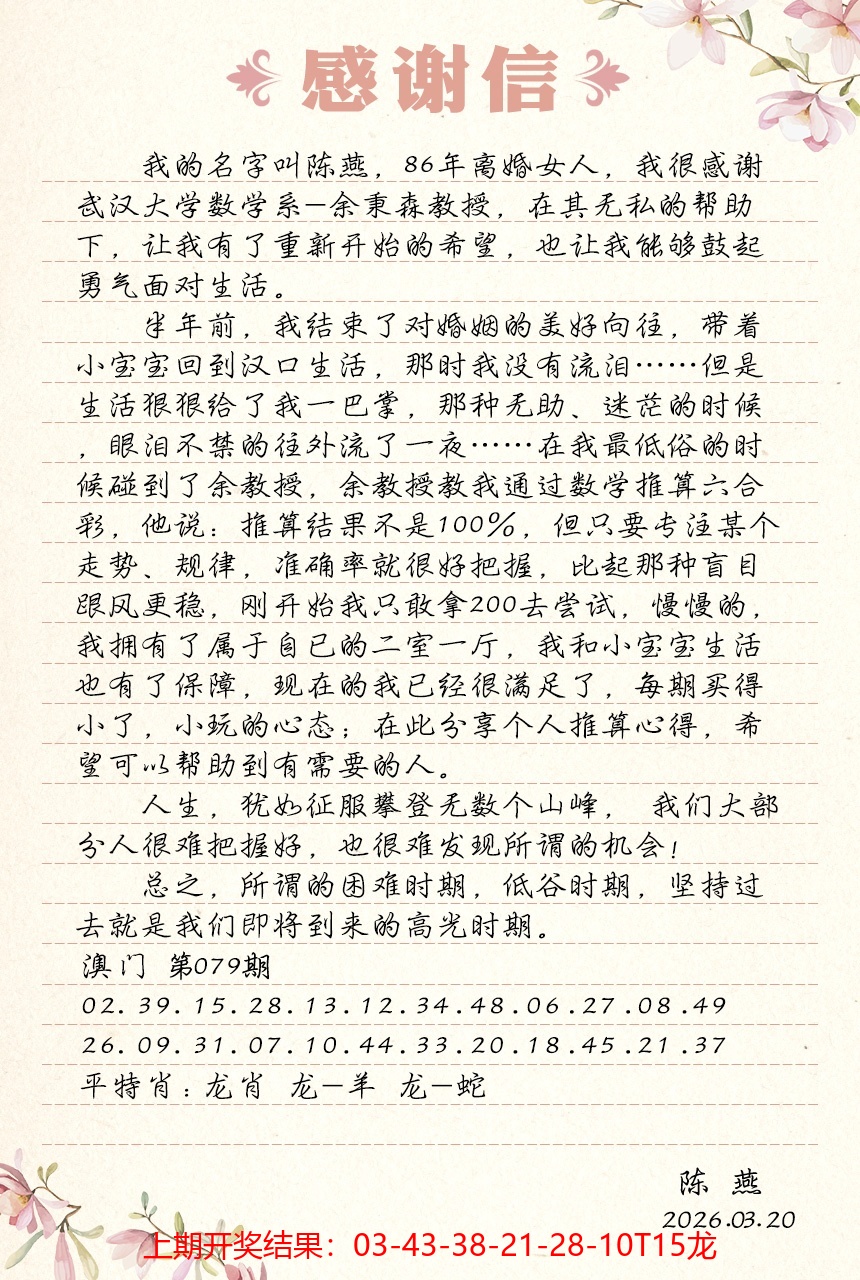 感谢信
我的名字叫陈燕，86年离婚女人，我很感谢
武汉大学数学系—余秉森教授，在其无私的帮助
下，让我有了重新开始的希望，也让我能够鼓起
勇气面对生活。
半年前，我结束了对婚姻的美好向往，带着
小宝宝回到汉口生活，那时我没有流泪……但是
生活狠狠给了我一巴掌，那种无助、迷茫的时候
，眼泪不禁的往外流了一夜……在我最低俗的时
候碰到了余教授，余教授教我通过数学推算六合
彩，他说：推算结果不是100%，但只要专注某个
走势、规律，准确率就很好把握，比起那种盲目
跟风更稳，刚开始我只敢拿200去尝试，慢慢的，
我拥有了属于自已的二室一厅，我和小宝宝生活
也有了保障，现在的我已经很满足了，每期买得
小了，小玩的心态；在此分享个人推算心得，希
望可以帮助到有需要的人。
人生，犹如征服攀登无数个山峰， 我们大部
分人很难把握好，也很难发现所谓的机会！
总之，所谓的困难时期，低谷时期，坚持过
去就是我们即将到来的高光时期。
澳门 第079期
02.39.15.28.13.12.34.48.06.27.08.49
26.09.31.07.10.44.33.20.18.45.21.37
平特肖：龙肖 龙—羊 龙—蛇
陈 燕
2026.03.20
上期开奖结果：03-43-38-21-28-10T15龙